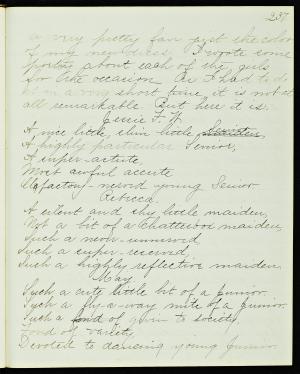 237
a very pretty fan just the color
of my new dress. I wrote some
"poetry" about each of the girls
for the occasion. As I had to do
it in a very short time, it is not at
all remarkable. But here it is:
Jessie F. W.
A nice little, slim little
A highly particular Senior,
A super-astute,
Most awful accute
Olfactory-nerved young Senior.
Rebecca.
A silent and shy little maiden,
Not a bit of a Chatterbox maiden,
Such a never-unnerved
Such a super-reserved,
Such a highly reflective maiden.
May
Such a cute little bit of a Junior.
Such a fly-a-way mite of a Junior.
Such a fond of goin to society,
Fond of variety
Devoted to dancing young Junior.